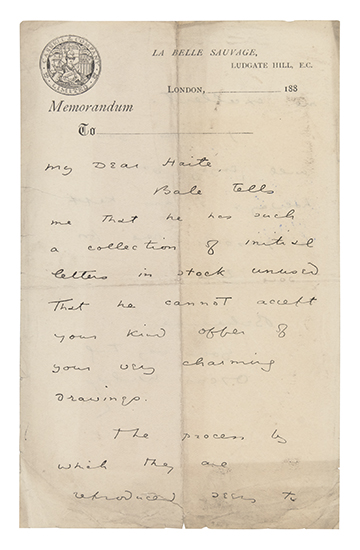 CASSELL & COMPANY
LIMITED
LA BELLE SAUVAGE,
LUDGATE HILL, E.C.
LONDON, 188
Memorandum
To
My Dear Haité
Bale tells
me that he has such
a collection of initial
letters in stock unused
that he cannot accept
your kind offer of
your very charming
drawings.
The process by
which they are
reproduced seems to